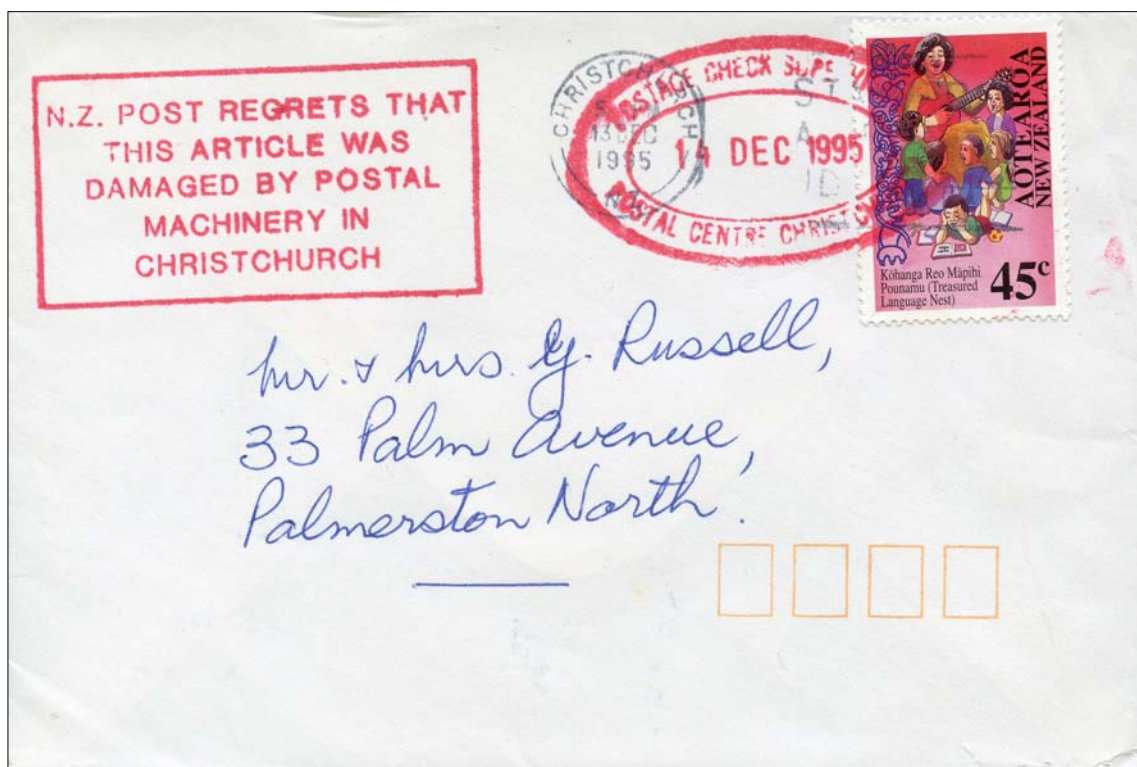 N.Z. POST REGRETS THAT
THIS ARTICLE WAS
DAMAGED BY POSTAL
MACHINERY IN
CHRISTCHURCH
CHRISTCHURCH
13 DEC
1995
POSTAGE CHECK
14 DEC 1995
POSTAL CENTRE
AOTEAROA
NEW ZEALAND
Kōhanga Reo Māpihi
Pounamu (Treasured
Language Nest)
45c
Mr. & Mrs. G. Russell,
33 Palm Avenue,
Palmerston North.